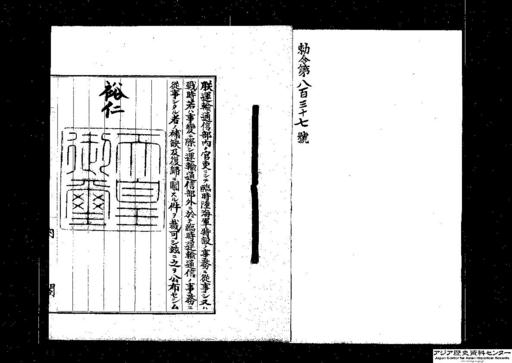 勅令第八百三十七號
朕運輸通信部內ノ官吏ニシテ臨時陸海軍特設ノ事務ニ從事シ又ハ
戰時若ハ事變ニ際シ運輸通信部外ニ於テ臨時運輸通信ノ事務ニ
從事シタル者ノ補闕及復歸ニ關スル件ヲ裁可シ玆ニ之ヲ公布セシム
裕仁
天皇御璽
內閣
アジア歴史資料センター
Japan Center for Asian Historical Records